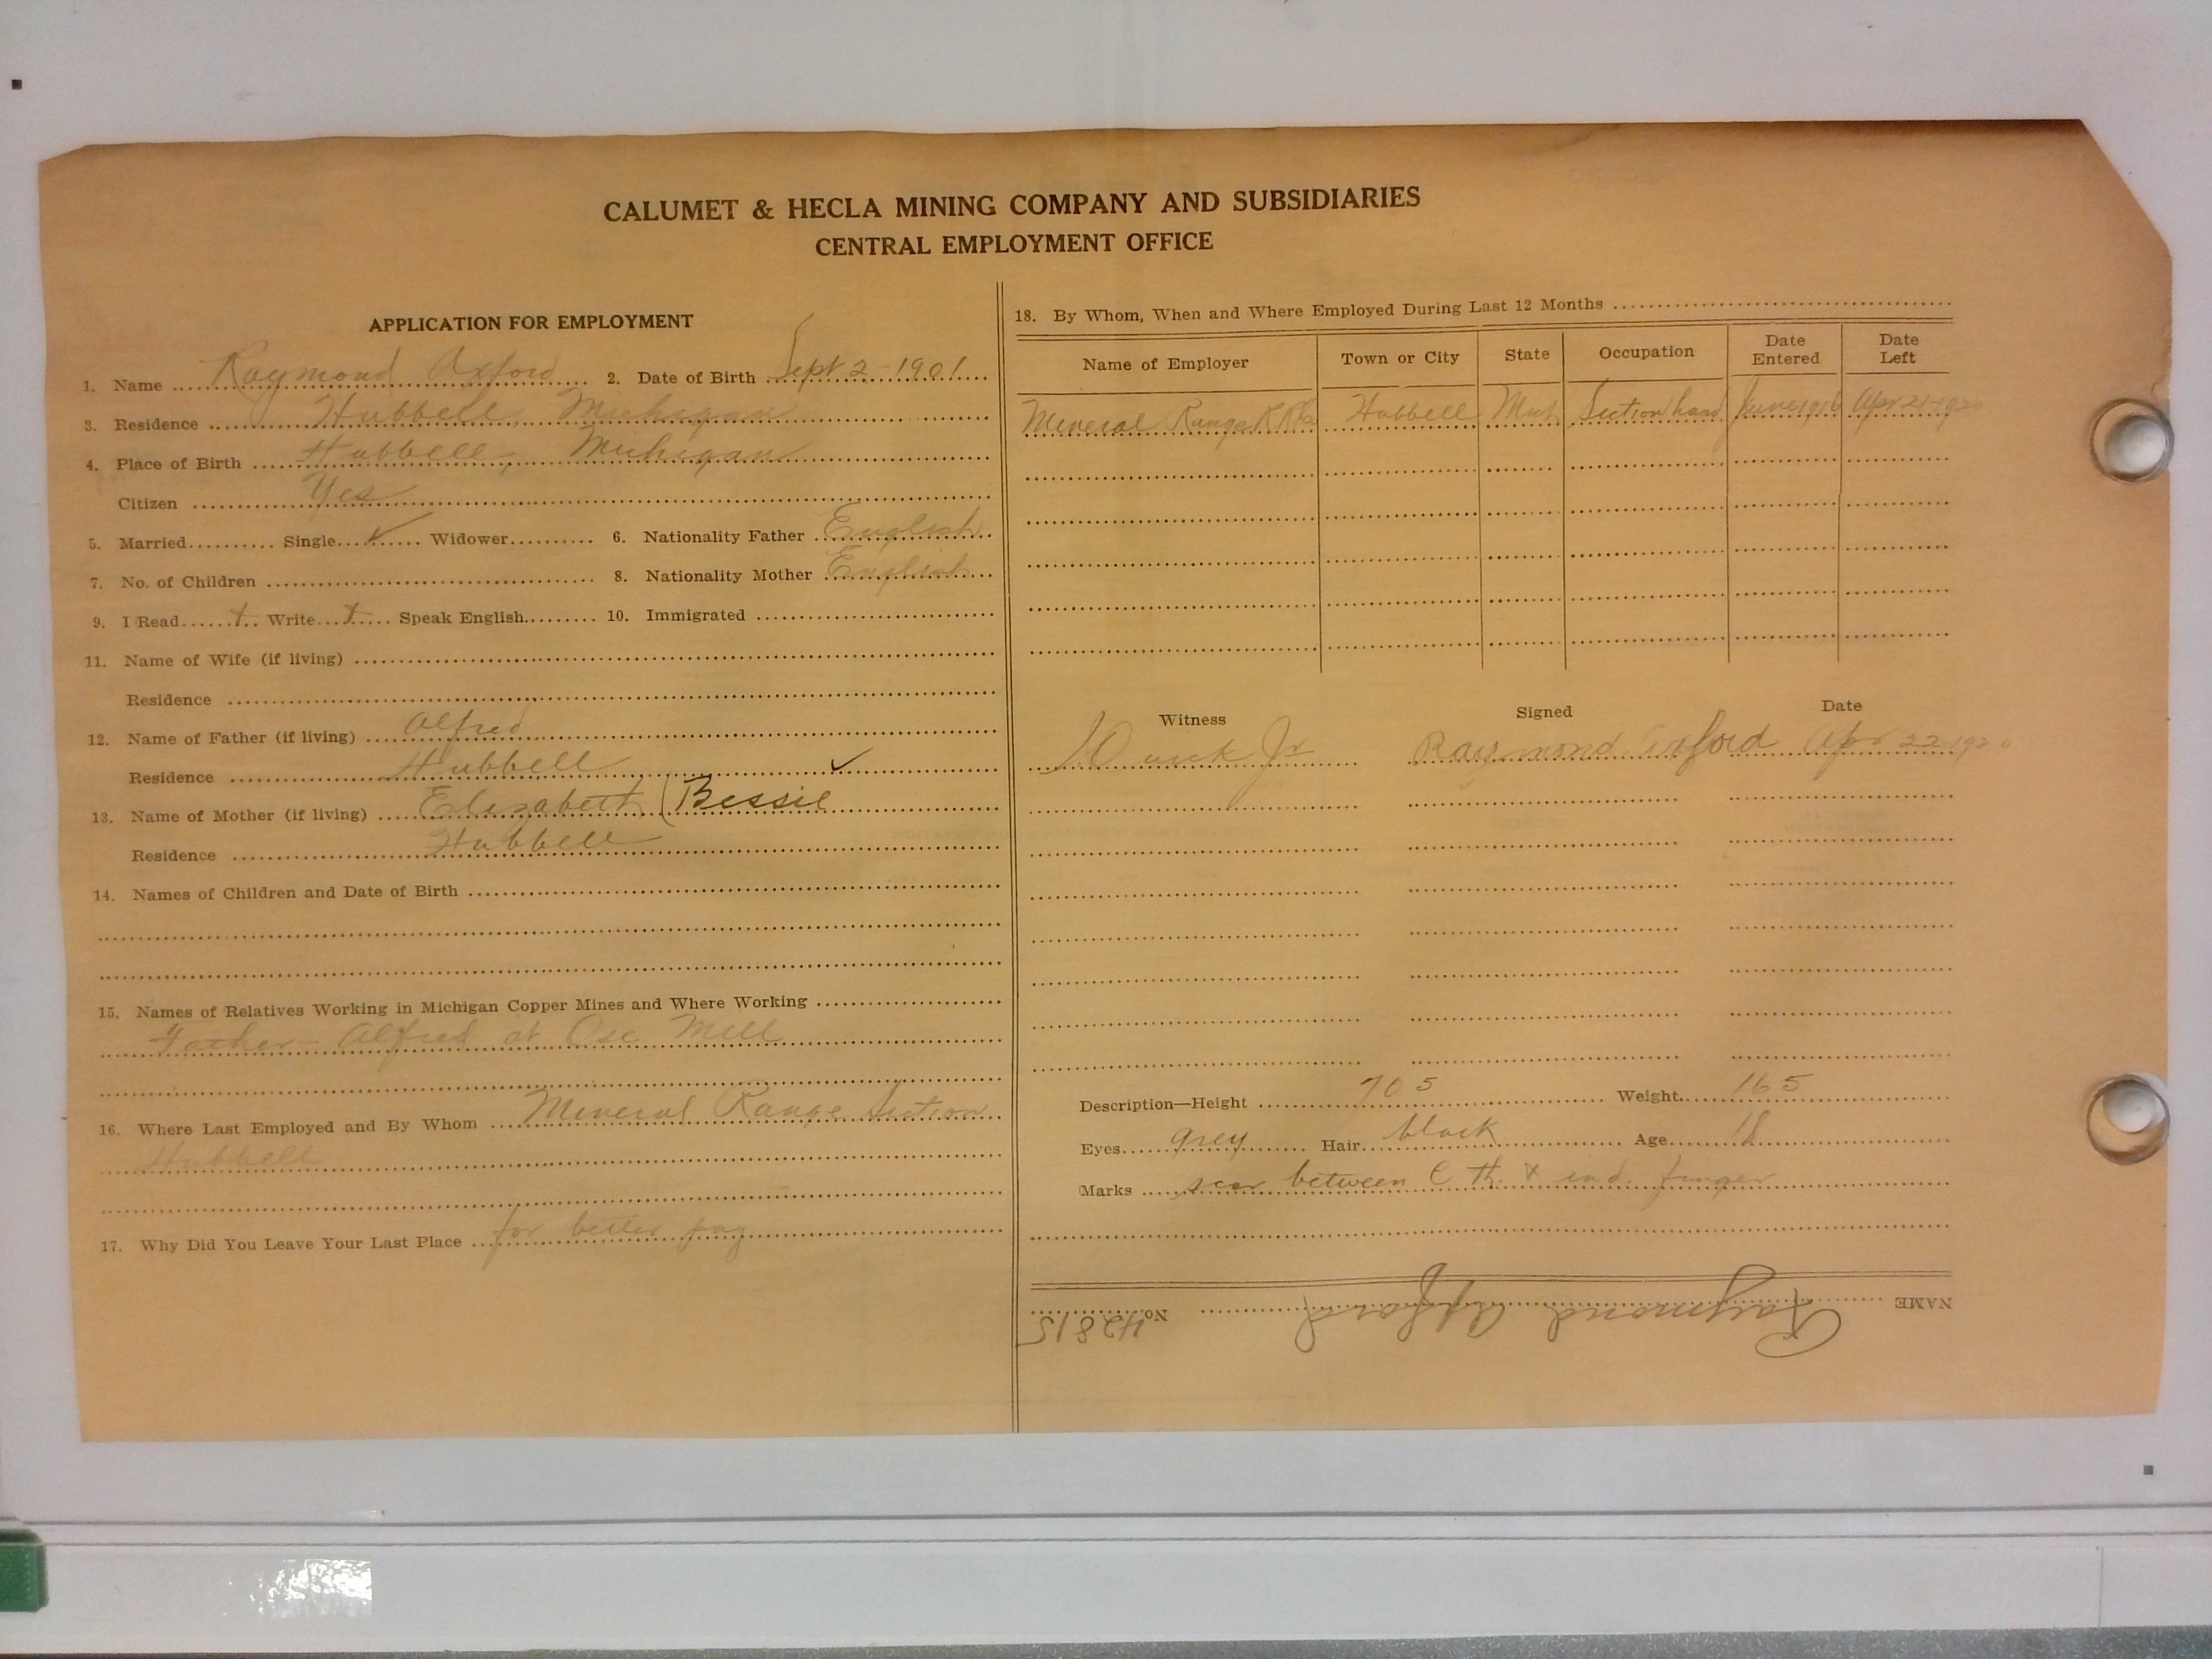 CALUMET & HECLA MINING COMPANY AND SUBSIDIARIES
CENTRAL EMPLOYMENT OFFICE
APPLICATION FOR EMPLOYMENT
1. Name Raymond Oxford 2. Date of Birth Sept 2-1901
3. Residence Hubbell, Michigan
4. Place of Birth Hubbell, Michigan
Citizen Yes
5. Married Single ✓ Widower 6. Nationality Father English
7. No. of Children 8. Nationality Mother English
9. I Read Write Speak English 10. Immigrated
11. Name of Wife (if living)
Residence
12. Name of Father (if living) Alfred
Residence Hubbell ✓
13. Name of Mother (if living) Elizabeth (Bessie
Residence Hubbell
14. Names of Children and Date of Birth
15. Names of Relatives Working in Michigan Copper Mines and Where Working
Father - Alfred at Osc Mill
16. Where Last Employed and By Whom Mineral Range Section
Hubbell
17. Why Did You Leave Your Last Place for better pay
18. By Whom, When and Where Employed During Last 12 Months
Name of Employer Town or City State Occupation Date Entered Date Left
Mineral Range R.R. Co Hubbell Mich Section hand June 1916 Apr 21-1920
Witness Signed Date
Jr Raymond Oxford Apr 22 1920
Description—Height 70 5 Weight 165
Eyes grey Hair black Age 18
Marks scar between l th. & ind. finger
NAME Raymond Oxford No. 42815